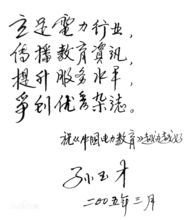 立足電力行业，
傳播教育資訊，
提升服务水平，
争创优秀杂誌。
祝《中国电力教育》越办越好
孙玉才
二〇〇五年三月